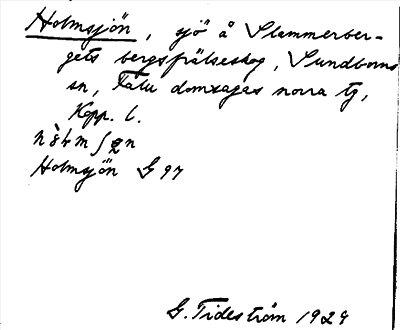 Holmsjön, sjö å Slemmerber-
gets bergsfrälseskog, Sundborns
sn, Falu domsagas norra tg,
Kopp. l.
Holmsjön G 97
G. Tideström 1929